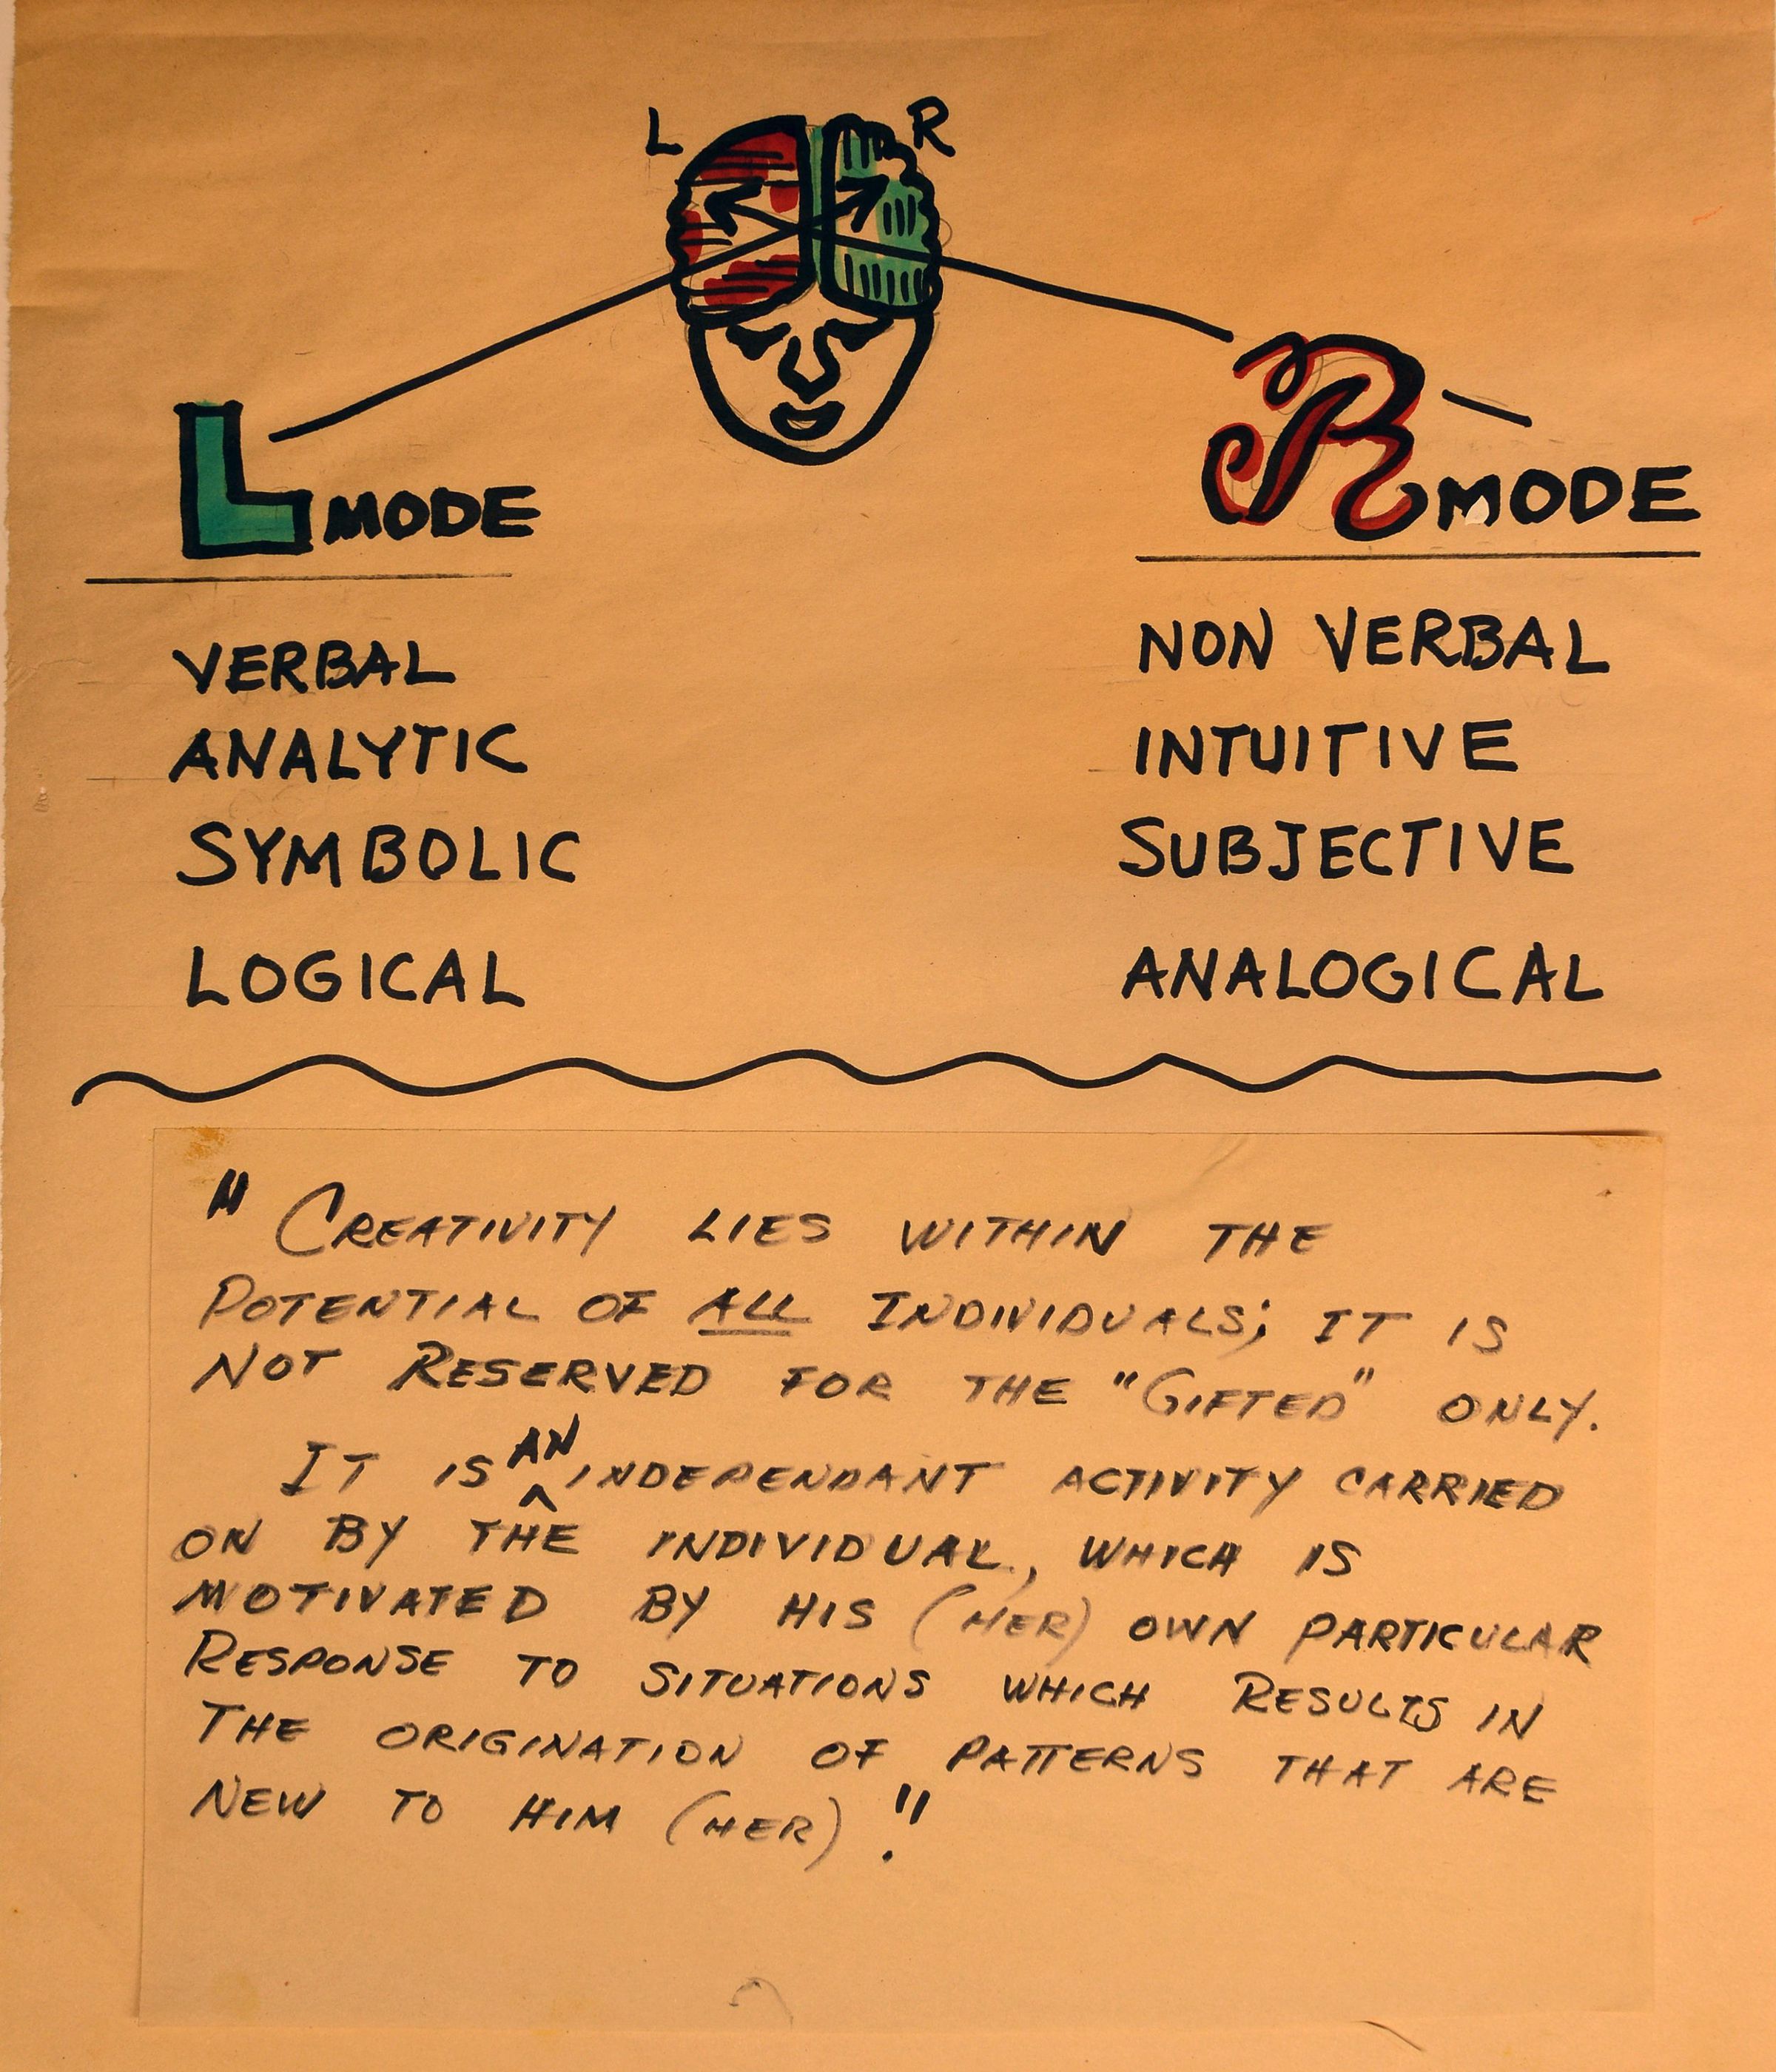 L R
L MODE
R MODE
VERBAL
ANALYTIC
SYMBOLIC
LOGICAL
NON VERBAL
INTUITIVE
SUBJECTIVE
ANALOGICAL
" CREATIVITY LIES WITHIN THE
POTENTIAL OF ALL INDIVIDUALS; IT IS
NOT RESERVED FOR THE "GIFTED" ONLY.
IT IS AN INDEPENDANT ACTIVITY CARRIED
ON BY THE INDIVIDUAL, WHICH IS
MOTIVATED BY HIS (HER) OWN PARTICULAR
RESPONSE TO SITUATIONS WHICH RESULTS IN
THE ORIGINATION OF PATTERNS THAT ARE
NEW TO HIM (HER)."